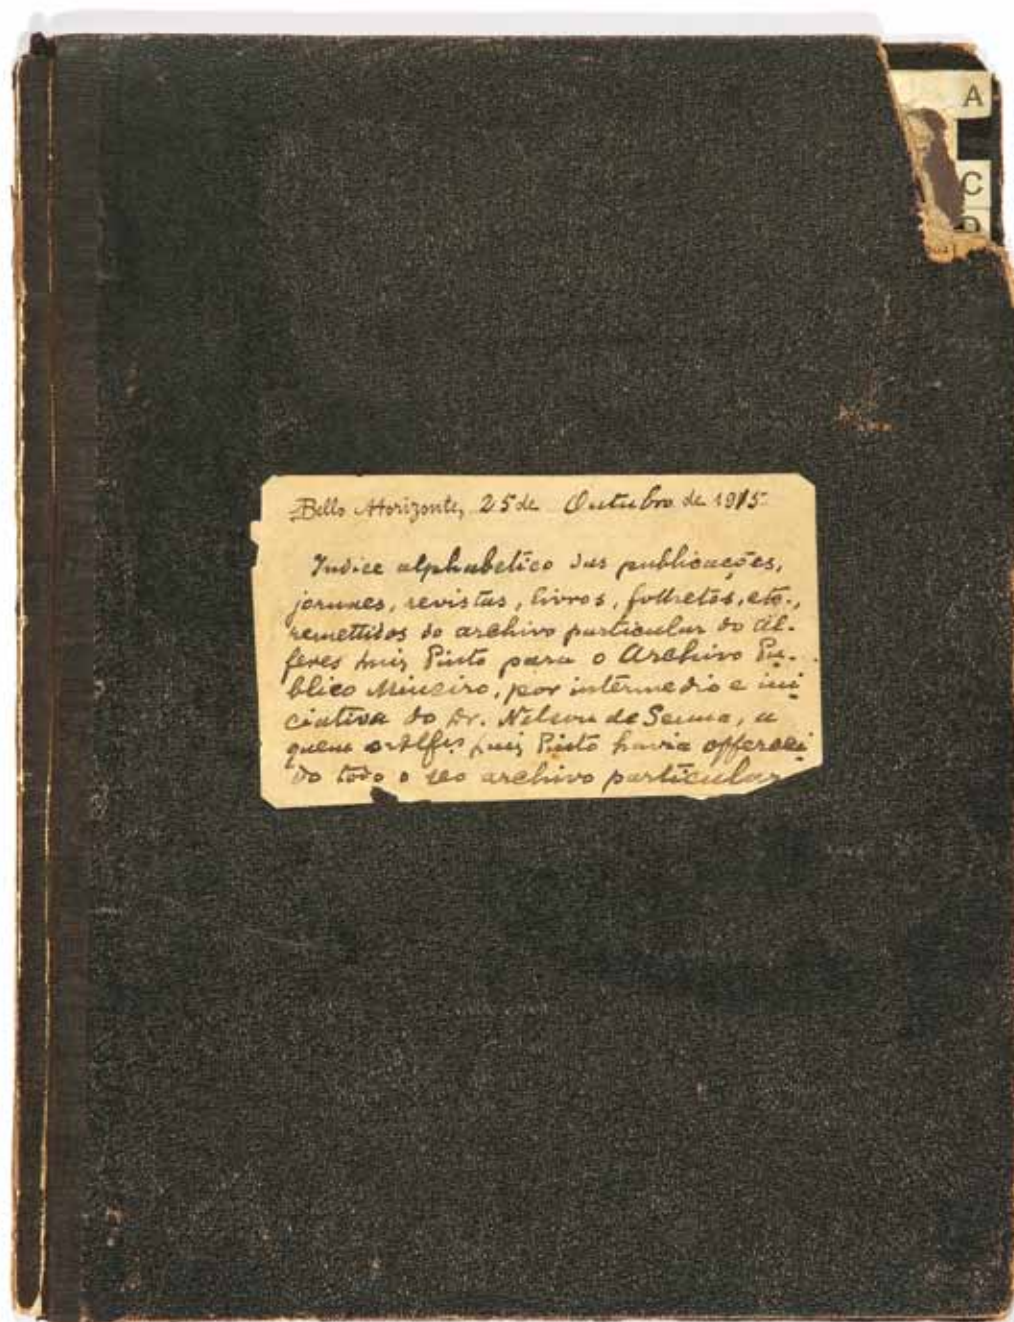 A
C
D
Bello Horizonte, 25 de Outubro de 1915
Indice alphabetico das publicações,
jornaes, revistas, livros, folhetos, etc.,
remettidos do archivo particular do Al-
feres Luiz Pinto para o Archivo Pu-
blico Mineiro, por intermedio e ini
ciativa do Dr. Nelson de Senna, a
quem o Alfes Luiz Pinto havia offereci
do todo o seo archivo particular